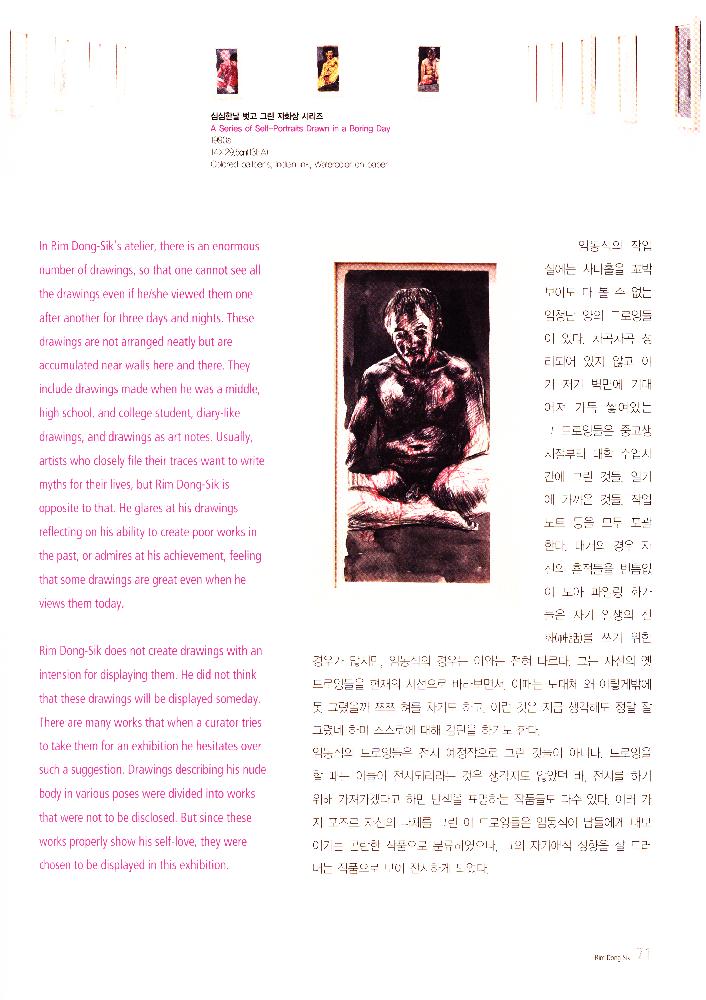 심심한날 벗고 그린 자화상 시리즈
A Series of Self-Portraits Drawn in a Boring Day
1990s
In Rim Dong-Sik's atelier, there is an enormous
number of drawings, so that one cannot see all
the drawings even if he/she viewed them one
after another for three days and nights. These
drawings are not arranged neatly but are
accumulated near walls here and there. They
include drawings made when he was a middle,
high school, and college student, diary-like
drawings, and drawings as art notes. Usually,
artists who closely file their traces want to write
myths for their lives, but Rim Dong-Sik is
opposite to that. He glares at his drawings
reflecting on his ability to create poor works in
the past, or admires at his achievement, feeling
that some drawings are great even when he
views them today.
Rim Dong-Sik does not create drawings with an
intension for displaying them. He did not think
that these drawings will be displayed someday.
There are many works that when a curator tries
to take them for an exhibition he hesitates over
such a suggestion. Drawings describing his nude
body in various poses were divided into works
that were not to be disclosed. But since these
works properly show his self-love, they were
chosen to be displayed in this exhibition.
임동식의 작업
실에는 사나흘을 꼬박
보아도 다 볼 수 없는
엄청난 양의 드로잉들
이 있다. 차곡차곡 정
리되어 있지 않고 여
기 저기 벽면에 기대
어져 가득 쌓여있는
그 드로잉들은 중고생
시절부터 대학 수업시
간에 그린 것들, 일기
에 가까운 것들, 작업
노트 등을 모두 포괄
한다. 대개의 경우 자
신의 흔적들을 빈틈없
이 모아 파일링 하기
들은 자기 인생의 신
화(神話)를 쓰기 위한
경우가 많지만, 임동식의 경우는 이와는 전혀 다르다. 그는 자신의 옛
드로잉들을 현재의 시선으로 바라보면서, 이때는 도대체 왜 이렇게밖에
못 그렸을까 쯔쯔 혀를 차기도 하고, 이런 것은 지금 생각해도 정말 잘
그렸네 하며 스스로에 대해 감탄을 하기도 한다.
임동식의 드로잉들은 전시 예정작으로 그린 것들이 아니다. 드로잉을
할 때는 이들이 전시되리라는 것은 생각지도 않았던 바, 전시를 하기
위해 가져가겠다고 하면 난색을 표명하는 작품들도 다수 있다. 여러 가
지 포즈로 자신의 나체를 그린 이 드로잉들은 임동식이 남들에게 내보
이기는 곤란한 작품으로 분류하였으나, 그의 자기애적 성향을 잘 드러
내는 작품으로 보여 전시하게 되었다.
Rim Dong-Sik 71